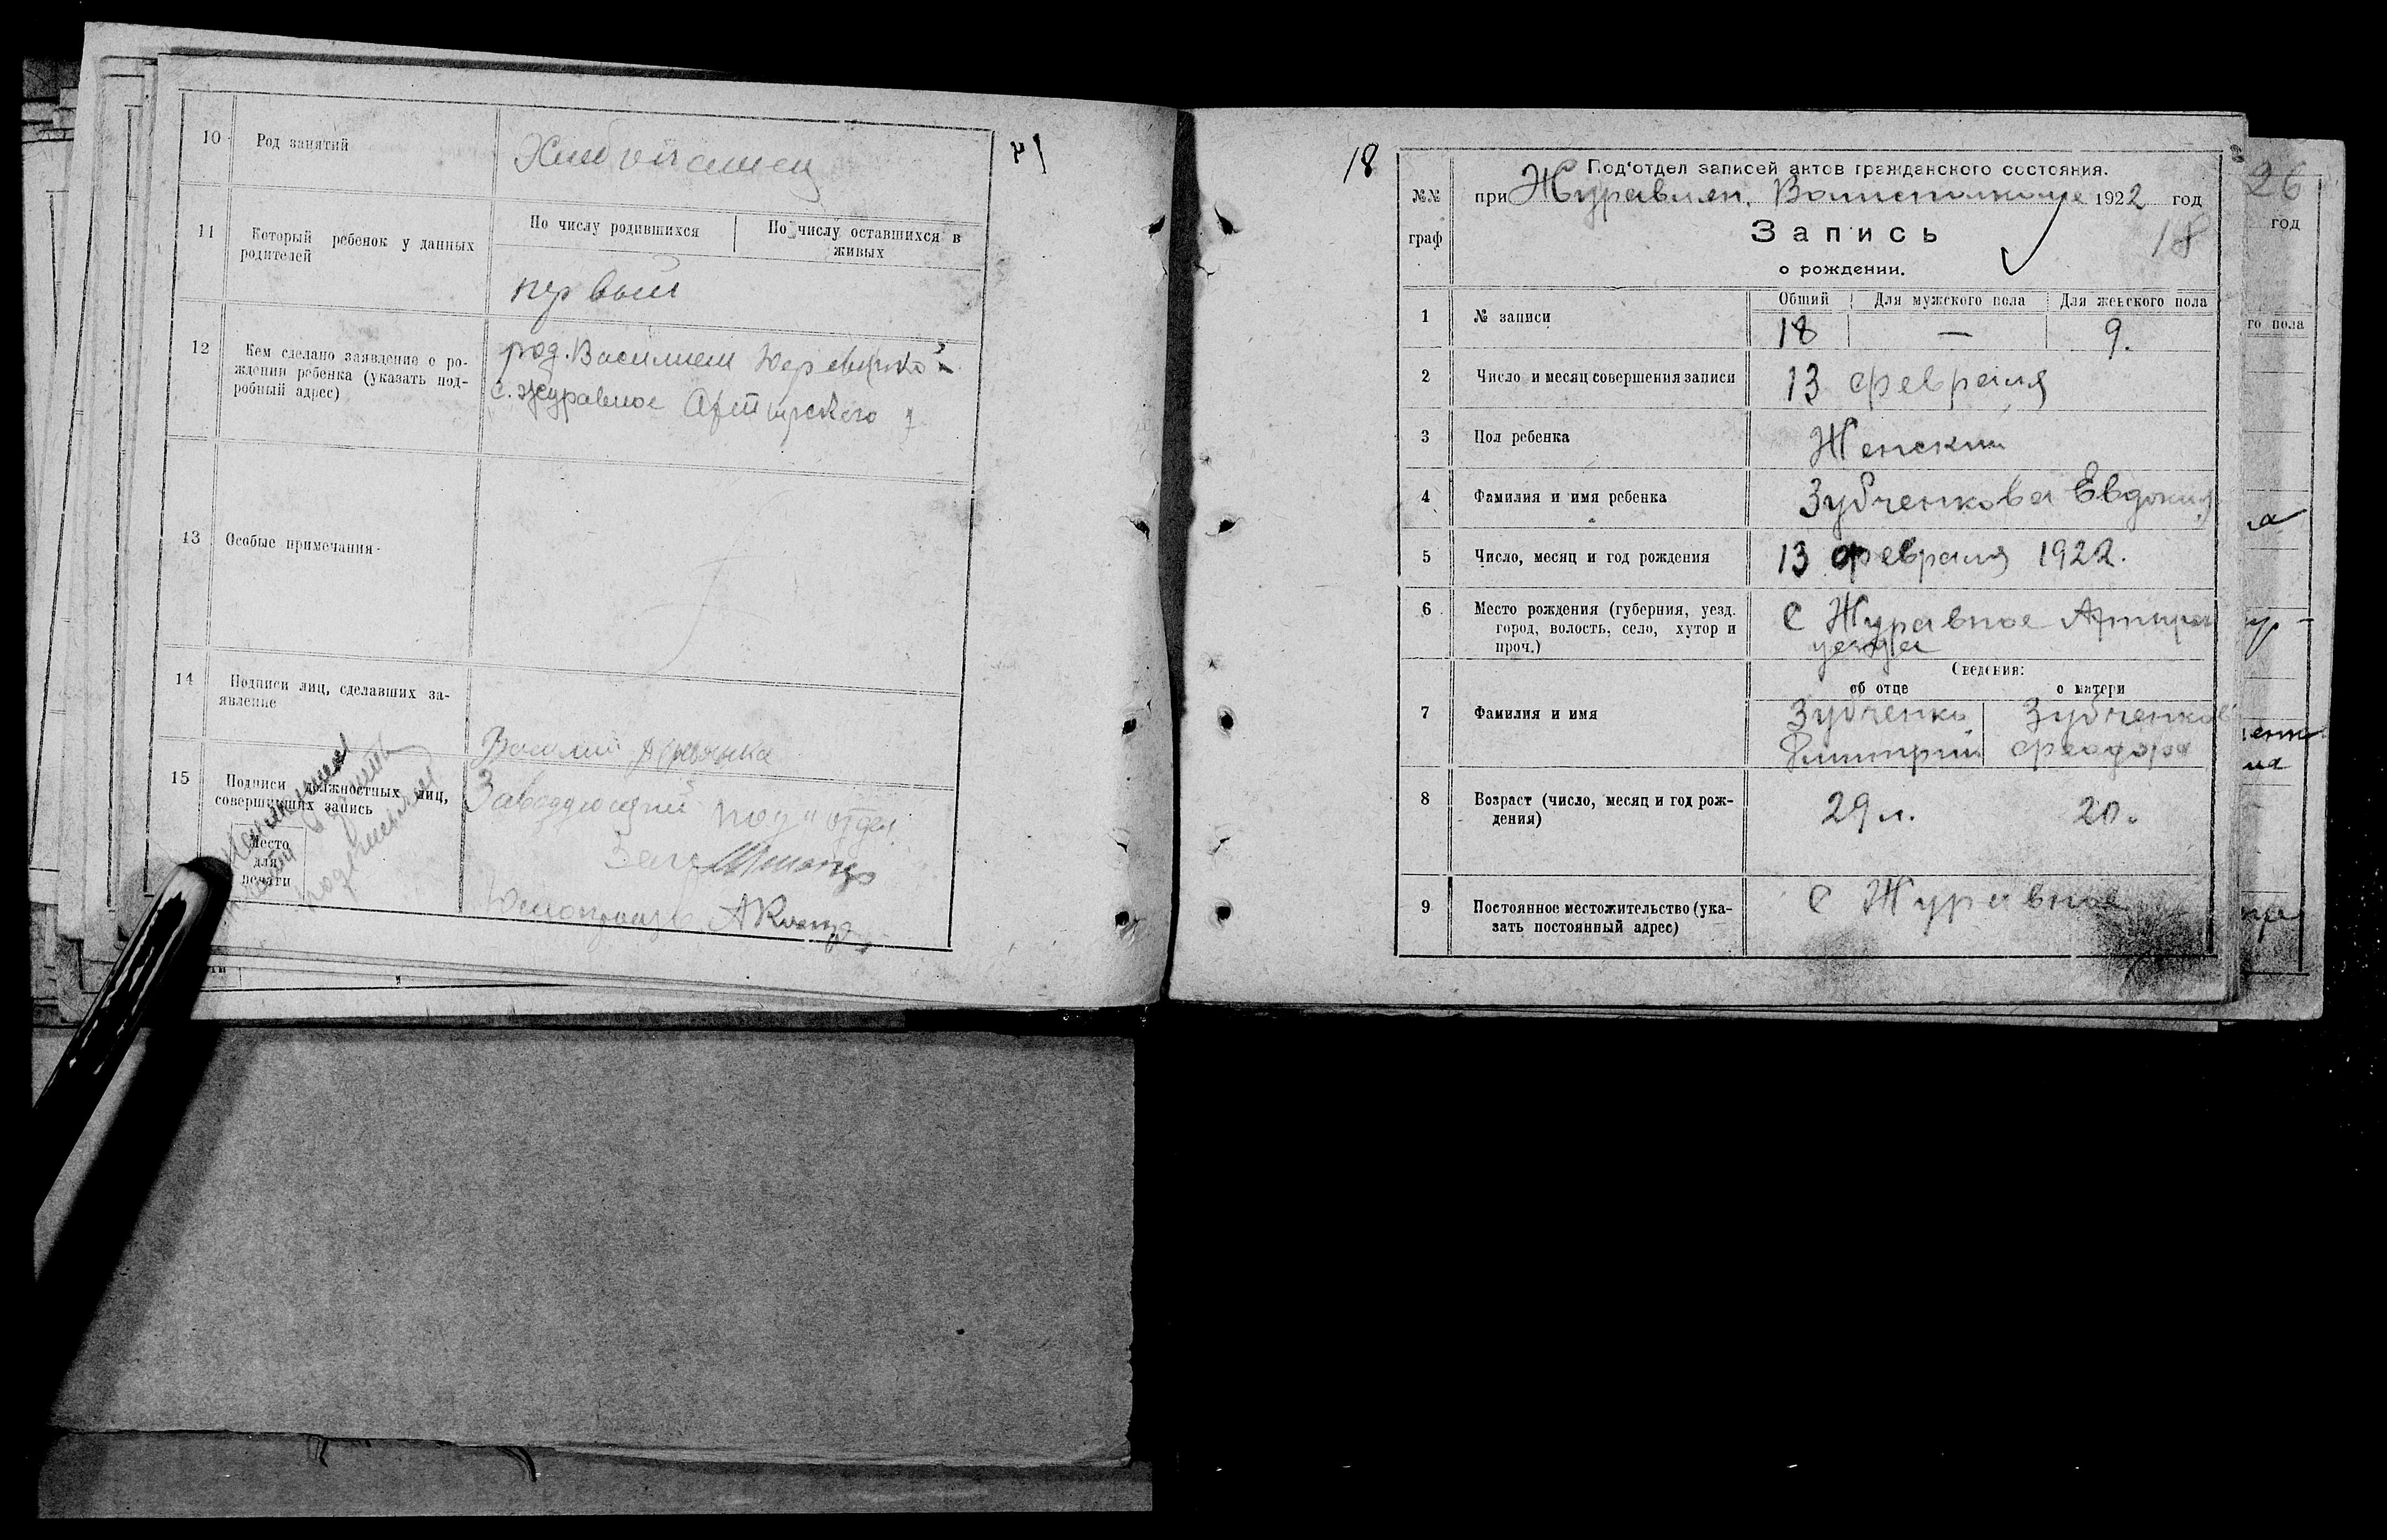 10 Род занятий
Хлебопашец
11 Который ребенок у данных
родителей
По числу родившихся По числу оставшихся в
живых
первый
12 Кем сделано заявдение о ро-
ждении ребенка (указать под-
робный адрес)
род. Василием
с. Журавное
13 Особые примечания
14 Подписи лиц, сделавших за-
явление
Василий
15 Подписи должностных лиц,
совершивших запись
Заведующий под"отдел
Место
для
печати
18
Под'отдел записей актов гражданского состояния.
№№
граф
при Журавлен. Волисполкоме 1922 год
Запись
18
о рождении.
1 № записи
Общий Для мужского пола Для женского пола
18 — 9.
2 Число и месяц совершения записи 13 февраля
3 Пол ребенка Женский
4 Фамилия и имя ребенка Зубченкова Евдокия
5 Число, месяц и год рождения 13 февраля 1922.
6 Место рождения (губерния, уезд.
город, волость, село, хутор и
проч.)
С Журавное
уезда
Сведения:
об отце о матери
7 Фамилия и имя
Зубченко Зубченков
Димитрий Феодора
8 Возраст (число, месяц и год рож-
дения)
29 л. 20.
9 Постоянное местожительство (ука-
зать постоянный адрес)
С Журавное
26
год
го пола